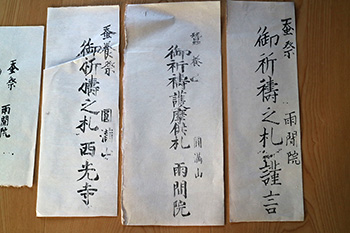 蚕祭
御祈禱之札謹言
雨間院
蚕養心
御祈禱護摩供札
圓満山
雨間院
蚕養祭
御祈禱之札
圓満山
西光寺
蚕祭
雨間院